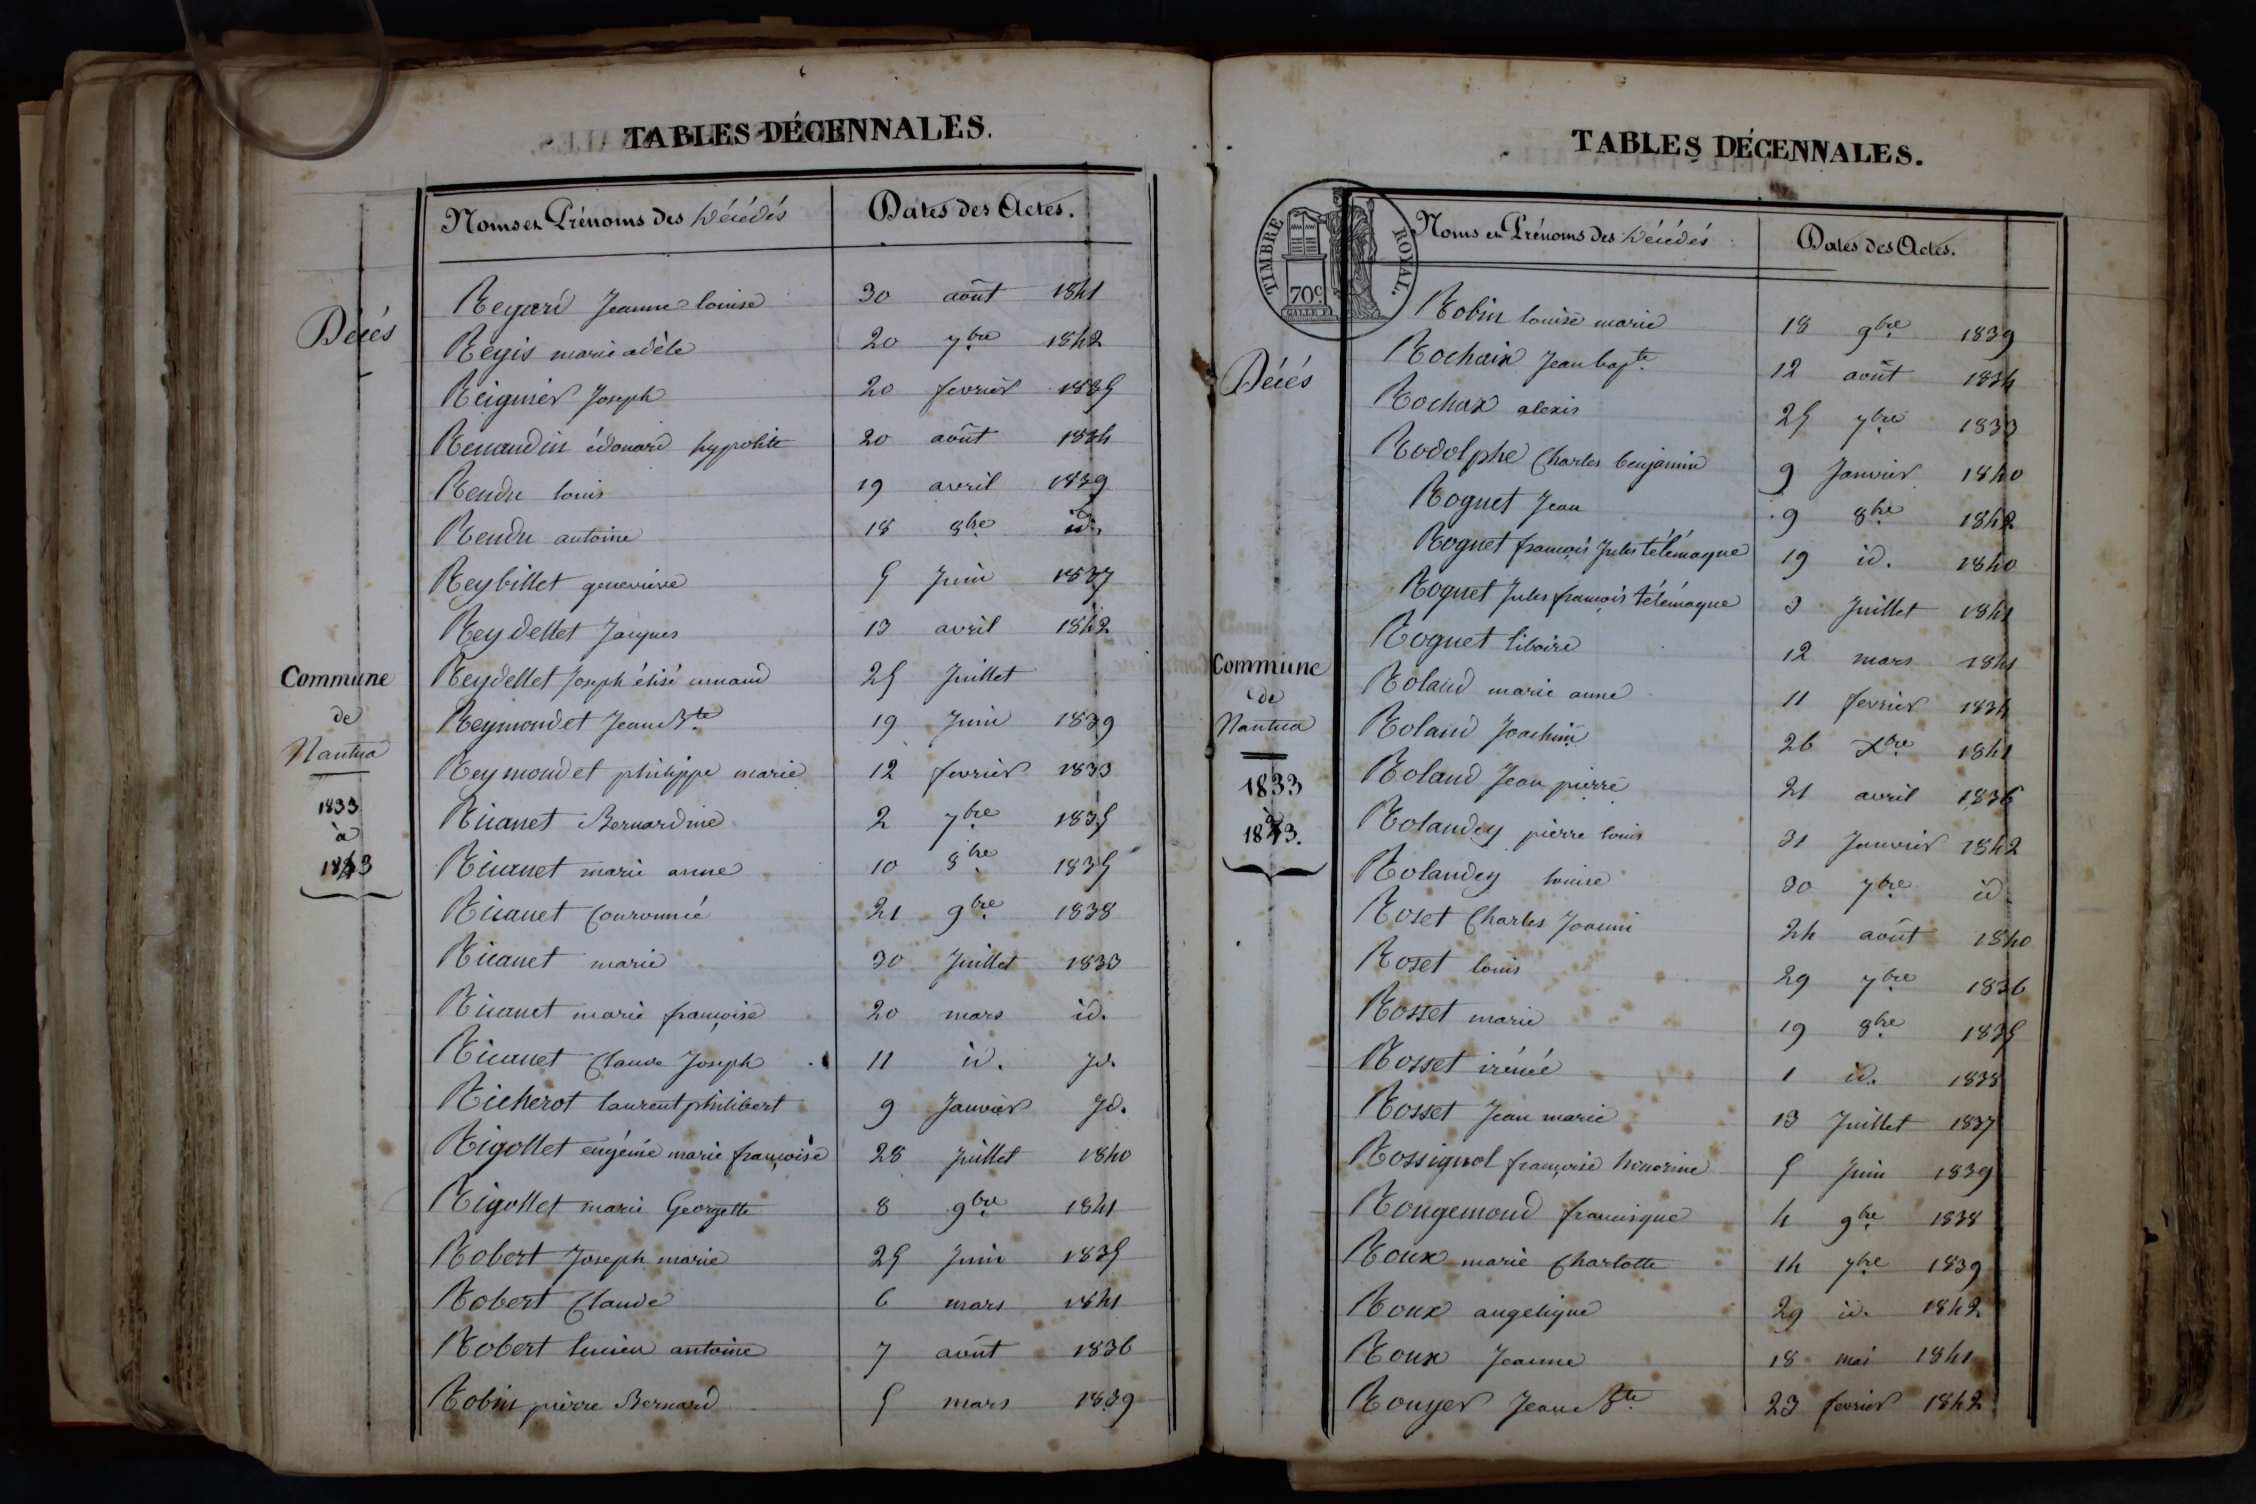 TABLES DÉCENNALES.
Noms et Prénoms des Décédés Dates des Actes.
Décés
Commune
de
Nantua
1833
à
1843
Regard Jeanne louise 30 août 1841
Regis marie adèle 20 7bre 1842
Reignier Joseph 20 fevrier 1835
Renaudin édouard hyppolite 20 août 1834
Rendu louis 19 avril 1839
Rendu antoine 18 8bre id.
Reybillet genevieve 5 Juin 1837
Reydellet Jacques 13 avril 1842
Reydellet Joseph élisé armand 25 Juillet
Reymondet Jean Bte 19 Juin 1839
Reymondet philippe marie 12 fevrier 1833
Ricanet Bernardine 2 7bre 1835
Ricanet marie anne 10 8bre 1835
Ricanet Couronnée 21 9bre 1838
Ricanet marie 30 Juillet 1833
Ricanet marie françoise 20 mars id.
Ricanet Claude Joseph 11 id. Jd.
Richerot laurent philibert 9 Janvier Jd.
Rigollet eugénie marie françoise 28 Juillet 1840
Rigollet marie Georgette 8 9bre 1841
Robert Joseph marie 25 Juin 1835
Robert Claude 6 mars 1841
Robert lucien antoine 7 août 1836
Robin pierre Bernard 5 mars 1839
TABLES DÉCENNALES.
TIMBRE ROYAL.
70c
Noms et Prénoms des Décédés Dates des Actes.
Décés
Commune
de
Nantua
1833
à
1843.
Robin louise marie 18 9bre 1839
Rochaix Jean bapte 12 août 1834
Rochax alexis 25 7bre 1833
Rodolphe Charles benjamin 9 Janvier 1840
Roguet Jean 9 8bre 1842
Roguet françois Jules télémaque 19 id. 1840
Roguet Jules françois télémaque 3 Juillet 1841
Roguet liboire 12 mars 1841
Roland marie anne 11 fevrier 1834
Roland Joachim 26 Xbre 1841
Roland Jean pierre 21 avril 1836
Rolandey pierre louis 31 Janvier 1842
Rolandey louise 30 7bre id
Roset Charles Joanni 24 août 1840
Roset louis 29 7bre 1836
Rosset marie 19 8bre 1835
Rosset irénée 1 id. 1838
Rosset Jean marie 13 Juillet 1837
Rossignol françoise honorine 5 Juin 1839
Rougemond francisque 4 9bre 1838
Roux marie Charlotte 14 7bre 1839
Roux angelique 29 id. 1842
Roux Jeanne 18 mai 1841
Rouyer Jean Bte 23 fevrier 1842